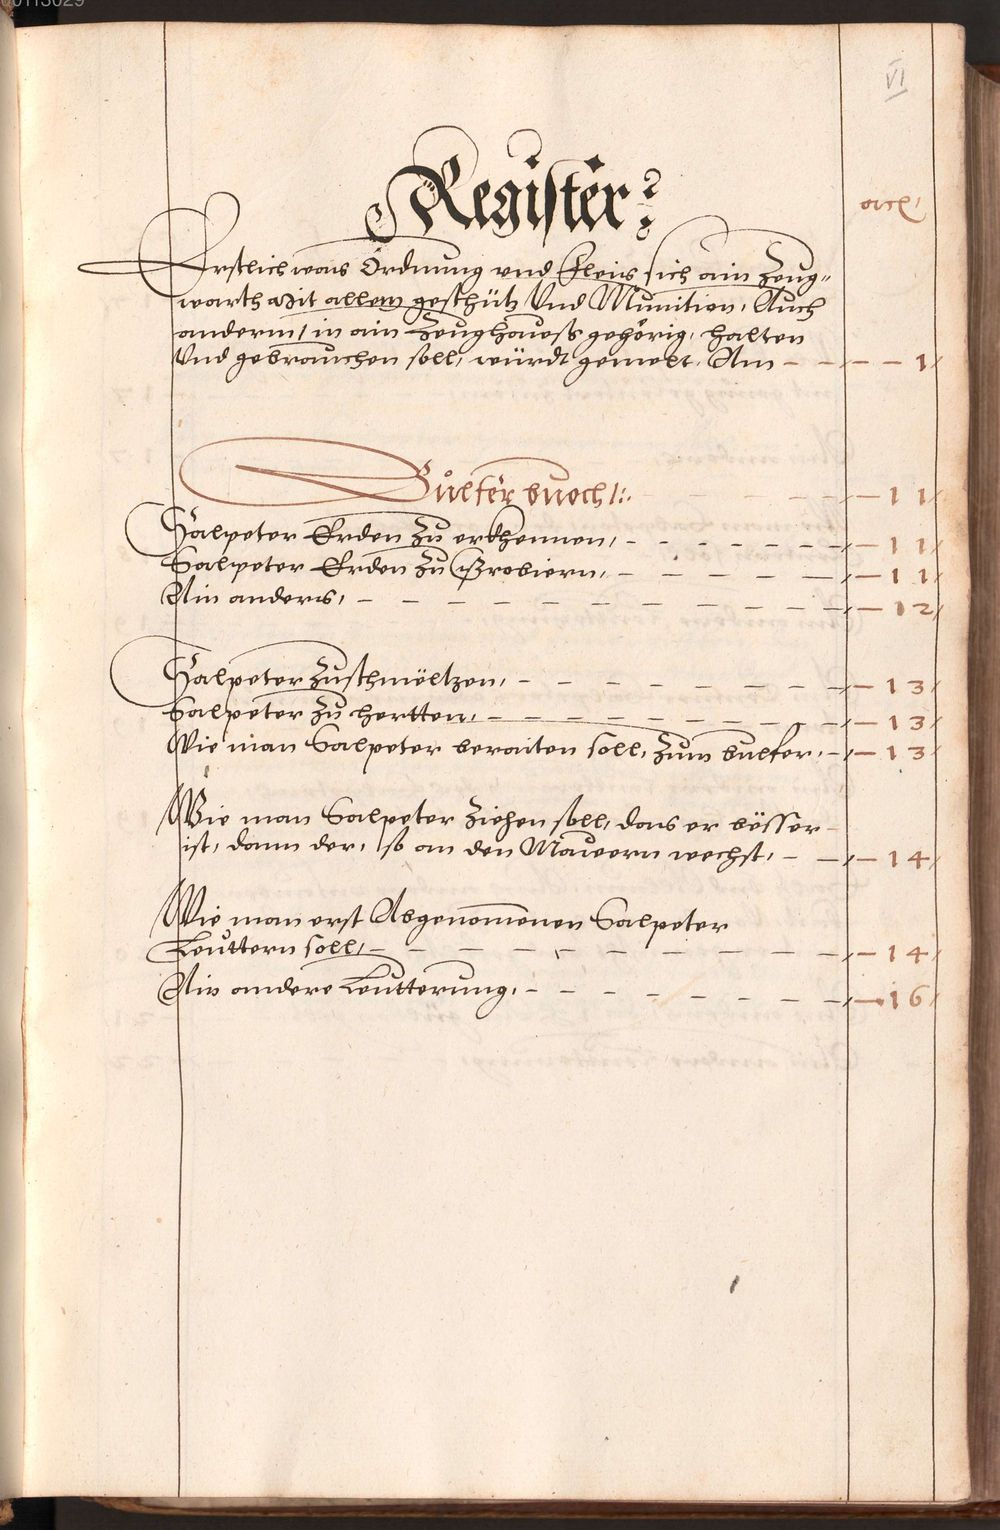 00113029
VI
Register
Erstlich was Ordnung vnd Fleis sich ain Zeug-
warth mit allem geschütz Vnd Munition, Auch
anderm, in ain Zeughauss gehörig, halten
Vnd gebrauchen soll, würdt gemelt. Am - - - - 1
Pulfer buoch - - - - 11
Salpeter Erden Zu erkhennen, - - - - 11
Salpeter Erden Zu Probiern, - - - - 11
Ain anders, - - - - 12
Salpeter Zuschmöltzen, - - - - 13
Salpeter Zu hertten, - - - - 13
Wie man Salpeter beraiten soll, Zum bulfer, - - 13
Wie man Salpeter Ziehen soll, das er bësser
ist, dann der, so an den Mauern wechst, - - 14
Wie man erst Abgenomenen Salpeter
Leuttern soll, - - - - 14
Ain andere Leutterung, - - - - 16